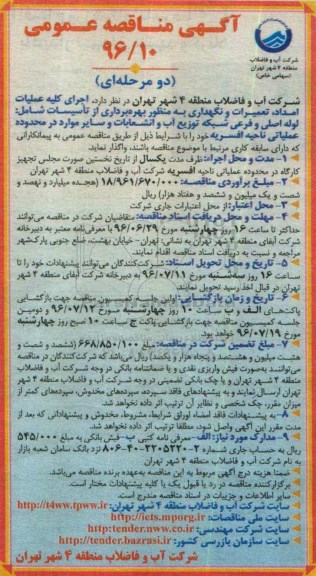 آگهی مناقصه عمومی
۹۶/۱۰
(دو مرحله‌ای)
شرکت آب و فاضلاب
منطقه ۴ شهر تهران
(سهامی خاص)
شرکت آب و فاضلاب منطقه ۴ شهر تهران در نظر دارد، اجرای کلیه عملیات
امداد، تعمیرات و نگهداری به منظور بهره‌برداری از تأسیسات شامل:
لوله اصلی و فرعی شبکه توزیع آب و انشعابات و سایر موارد در محدوده
عملیاتی ناحیه افسریه خود را با شرایط ذیل از طریق مناقصه عمومی به پیمانکارانی
که دارای سابقه کاری مرتبط با موضوع مناقصه باشند، واگذار نماید.
۱- مدت و محل اجرا: ظرف مدت یکسال از تاریخ نخستین صورت مجلس تجهیز
کارگاه در محدوده عملیاتی ناحیه افسریه شرکت آب و فاضلاب منطقه ۴ شهر تهران
۲- مبلغ برآوردی مناقصه: ۱۸/۹۶۱/۶۷۰/۰۰۰ (هجده میلیارد و نهصد و
شصت و یک میلیون و ششصد و هفتاد هزار) ریال
۳- محل اعتبار: از محل اعتبارات جاری شرکت
۴- مهلت و محل دریافت اسناد مناقصه: متقاضیان شرکت در مناقصه می‌توانند
حداکثر تا ساعت ۱۶ روز چهارشنبه مورخ ۹۶/۰۶/۲۹ با معرفی‌نامه معتبر به دبیرخانه
شرکت آبفای منطقه ۴ شهر تهران به نشانی: تهران- خیابان بهشت، ضلع جنوبی پارک‌شهر
مراجعه و نسبت به دریافت اسناد مناقصه اقدام نمایند.
۵- تاریخ و محل تحویل اسناد: شرکت‌کنندگان می‌توانند پیشنهادات خود را تا
ساعت ۱۶ روز سه‌شنبه مورخ ۹۶/۰۷/۱۱ به دبیرخانه شرکت آبفای منطقه ۴ شهر
تهران در قبال اخذ رسید تحویل نمایند.
۶- تاریخ و زمان بازگشایی: اولین جلسه کمیسیون مناقصه جهت بازگشایی
پاکت‌های الف و ب ساعت ۱۰ روز چهارشنبه مورخ ۹۶/۰۷/۱۲ و دومین
جلسه کمیسیون مناقصه جهت بازگشایی پاکت ج ساعت ۱۰ صبح روز چهارشنبه
مورخ ۹۶/۰۷/۱۹ خواهد بود.
۷- مبلغ تضمین شرکت در مناقصه: ۶۶۸/۸۵۰/۱۰۰ (ششصد و شصت و
هشت میلیون و هشتصد و پنجاه هزار و یکصد) ریال می‌باشد که شرکت‌کنندگان در مناقصه
می‌توانند به‌صورت فیش واریزی نقدی و یا ضمانتنامه بانکی در وجه شرکت آب و فاضلاب
منطقه ۴ شهر تهران و یا چک بانکی تضمینی در وجه شرکت آب و فاضلاب منطقه ۴ شهر
تهران ارسال نمایند و به پیشنهادهای فاقد سپرده، سپرده‌های مخدوش، سپرده‌های کمتر از
میزان مقرر، چک شخصی و نظایر آن ترتیب اثر داده نخواهد شد.
۸- به پیشنهادات فاقد امضاء اوراق شرایط، مشروط، مخدوش و پیشنهاداتی که بعد از
مدت مقرر این آگهی واصل شود، مطلقا ترتیب اثر داده نخواهد شد.
۹- مدارک مورد نیاز: الف- معرفی نامه کتبی ب- فیش بانکی به مبلغ ۵۴۵/۰۰۰
ریال به حساب جاری شماره ۲-۲۲۰۵۲۲۰-۴۰-۸۰۶ نزد بانک سامان شعبه بازار
به نام شرکت آب و فاضلاب منطقه ۴ شهر تهران
ضمنا هزینه درج آگهی مربوط به این مناقصه به‌عهده برنده مناقصه می‌باشد.
برگزارکننده مناقصه در رد یا قبول یک یا کلیه پیشنهادات مختار است.
سایر اطلاعات و جزییات در اسناد مناقصه مندرج است.
سایت شرکت آب و فاضلاب منطقه ۴ شهر تهران: http://t4ww.tpww.ir
سایت ملی مناقصات: http://iets.mporg.ir
سایت شرکت مهندسی: http://tender.nww.co.ir
سایت سازمان بازرسی کشور: http://tender.bazrasi.ir
شرکت آب و فاضلاب منطقه ۴ شهر تهران